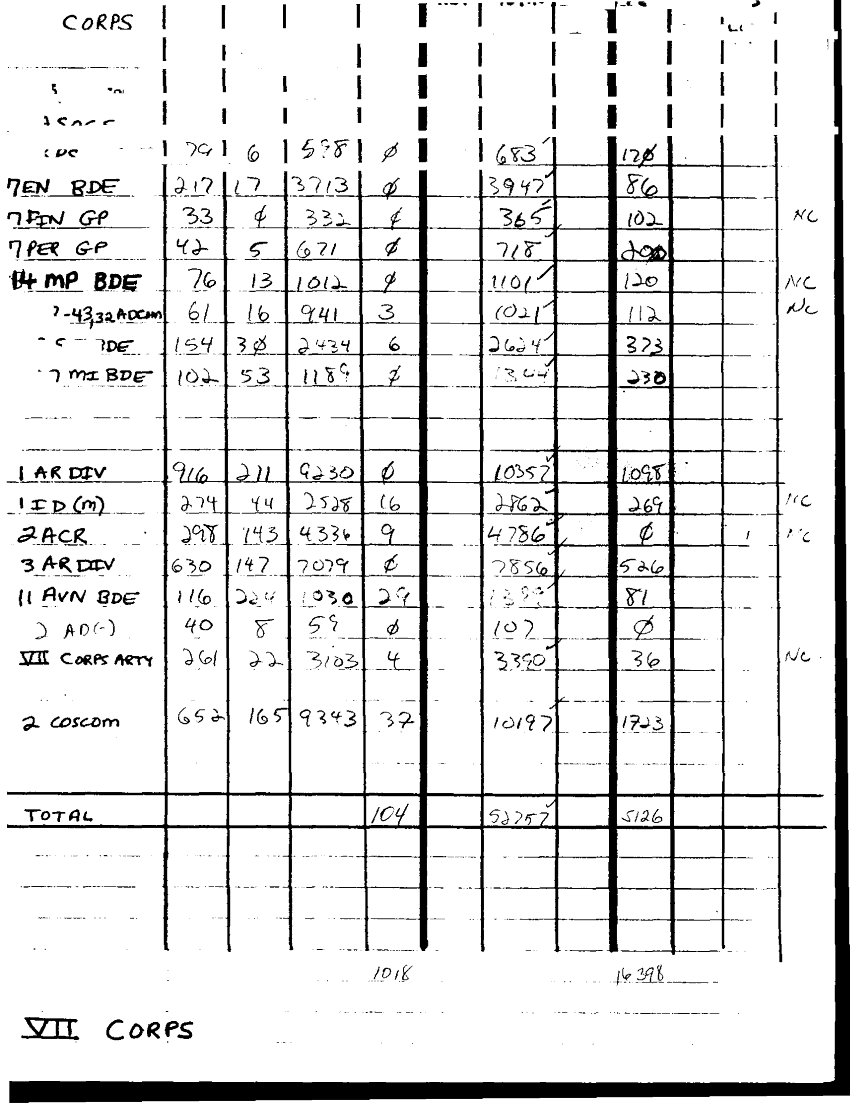 CORPS
79 6 598 ∅ 683 120
7EN BDE 217 17 3713 ∅ 3947 86
7FIN GP 33 ∅ 332 ∅ 365 102 NC
7PER GP 42 5 671 ∅ 718 200
14 MP BDE 76 13 1012 ∅ 1101 120 NC
-43,32 ADCOM 61 16 941 3 1021 112 NC
BDE 154 30 2434 6 2624 373
7 MI BDE 102 53 1189 ∅ 1344 230
1 AR DIV 916 211 9230 ∅ 10357 1098
1 ID (M) 274 44 2528 16 2862 269 NC
2 ACR 298 143 4336 9 4786 ∅ NC
3 AR DIV 630 147 7079 ∅ 7856 526
11 AVN BDE 116 224 1030 29 1399 81
AD(-) 40 8 59 ∅ 107 ∅
VII CORPS ARTY 261 22 3103 4 3390 36 NC
2 COSCOM 652 165 9343 37 10197 1723
TOTAL 104 52757 5126
1018 16398
VII CORPS